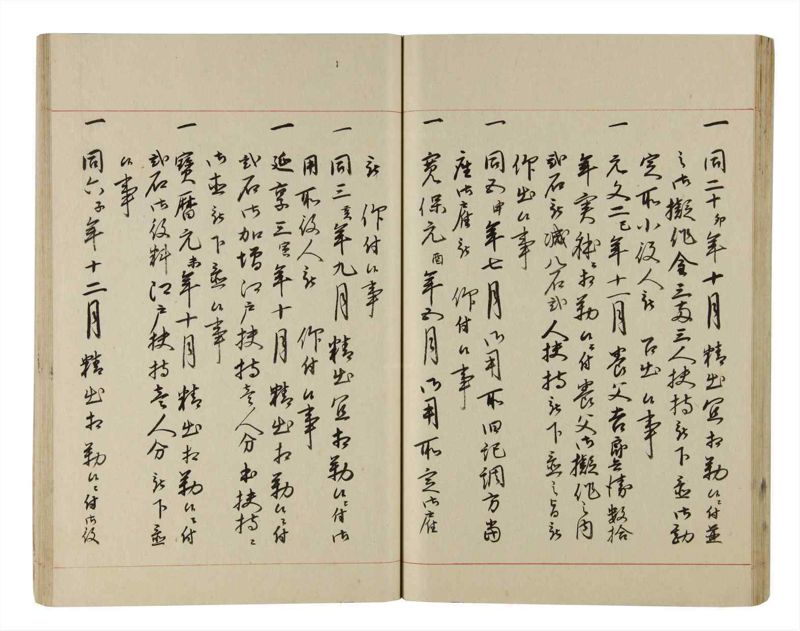 一 同二十卯年十月精出宜相勤候ニ付並
之御擬作金三両三人扶持被下置御勘
定所小役人被 召出候事
一 元文二巳年十一月養父吉郎兵衛数拾
年実躰ニ相勤候ニ付養父御擬作之内
弐石被減八石弐人扶持被下置之旨被
仰出候事
一 同五申年七月御用所旧記調方当
座御雇被 仰付候事
一 寛保元酉年五月御用所定御雇
被 仰付候事
一 同三亥年九月精出宜相勤候ニ付御
用所役人被 仰付候事
一 延享三寅年十月精出相勤候ニ付
弐石御加増江戸扶持壱人分本扶持ニ
御直被下置候事
一 寶暦元未年十月精出相勤候ニ付
弐石御役料江戸扶持壱人分被下置
候事
一 同六子年十二月精出相勤候ニ付御役